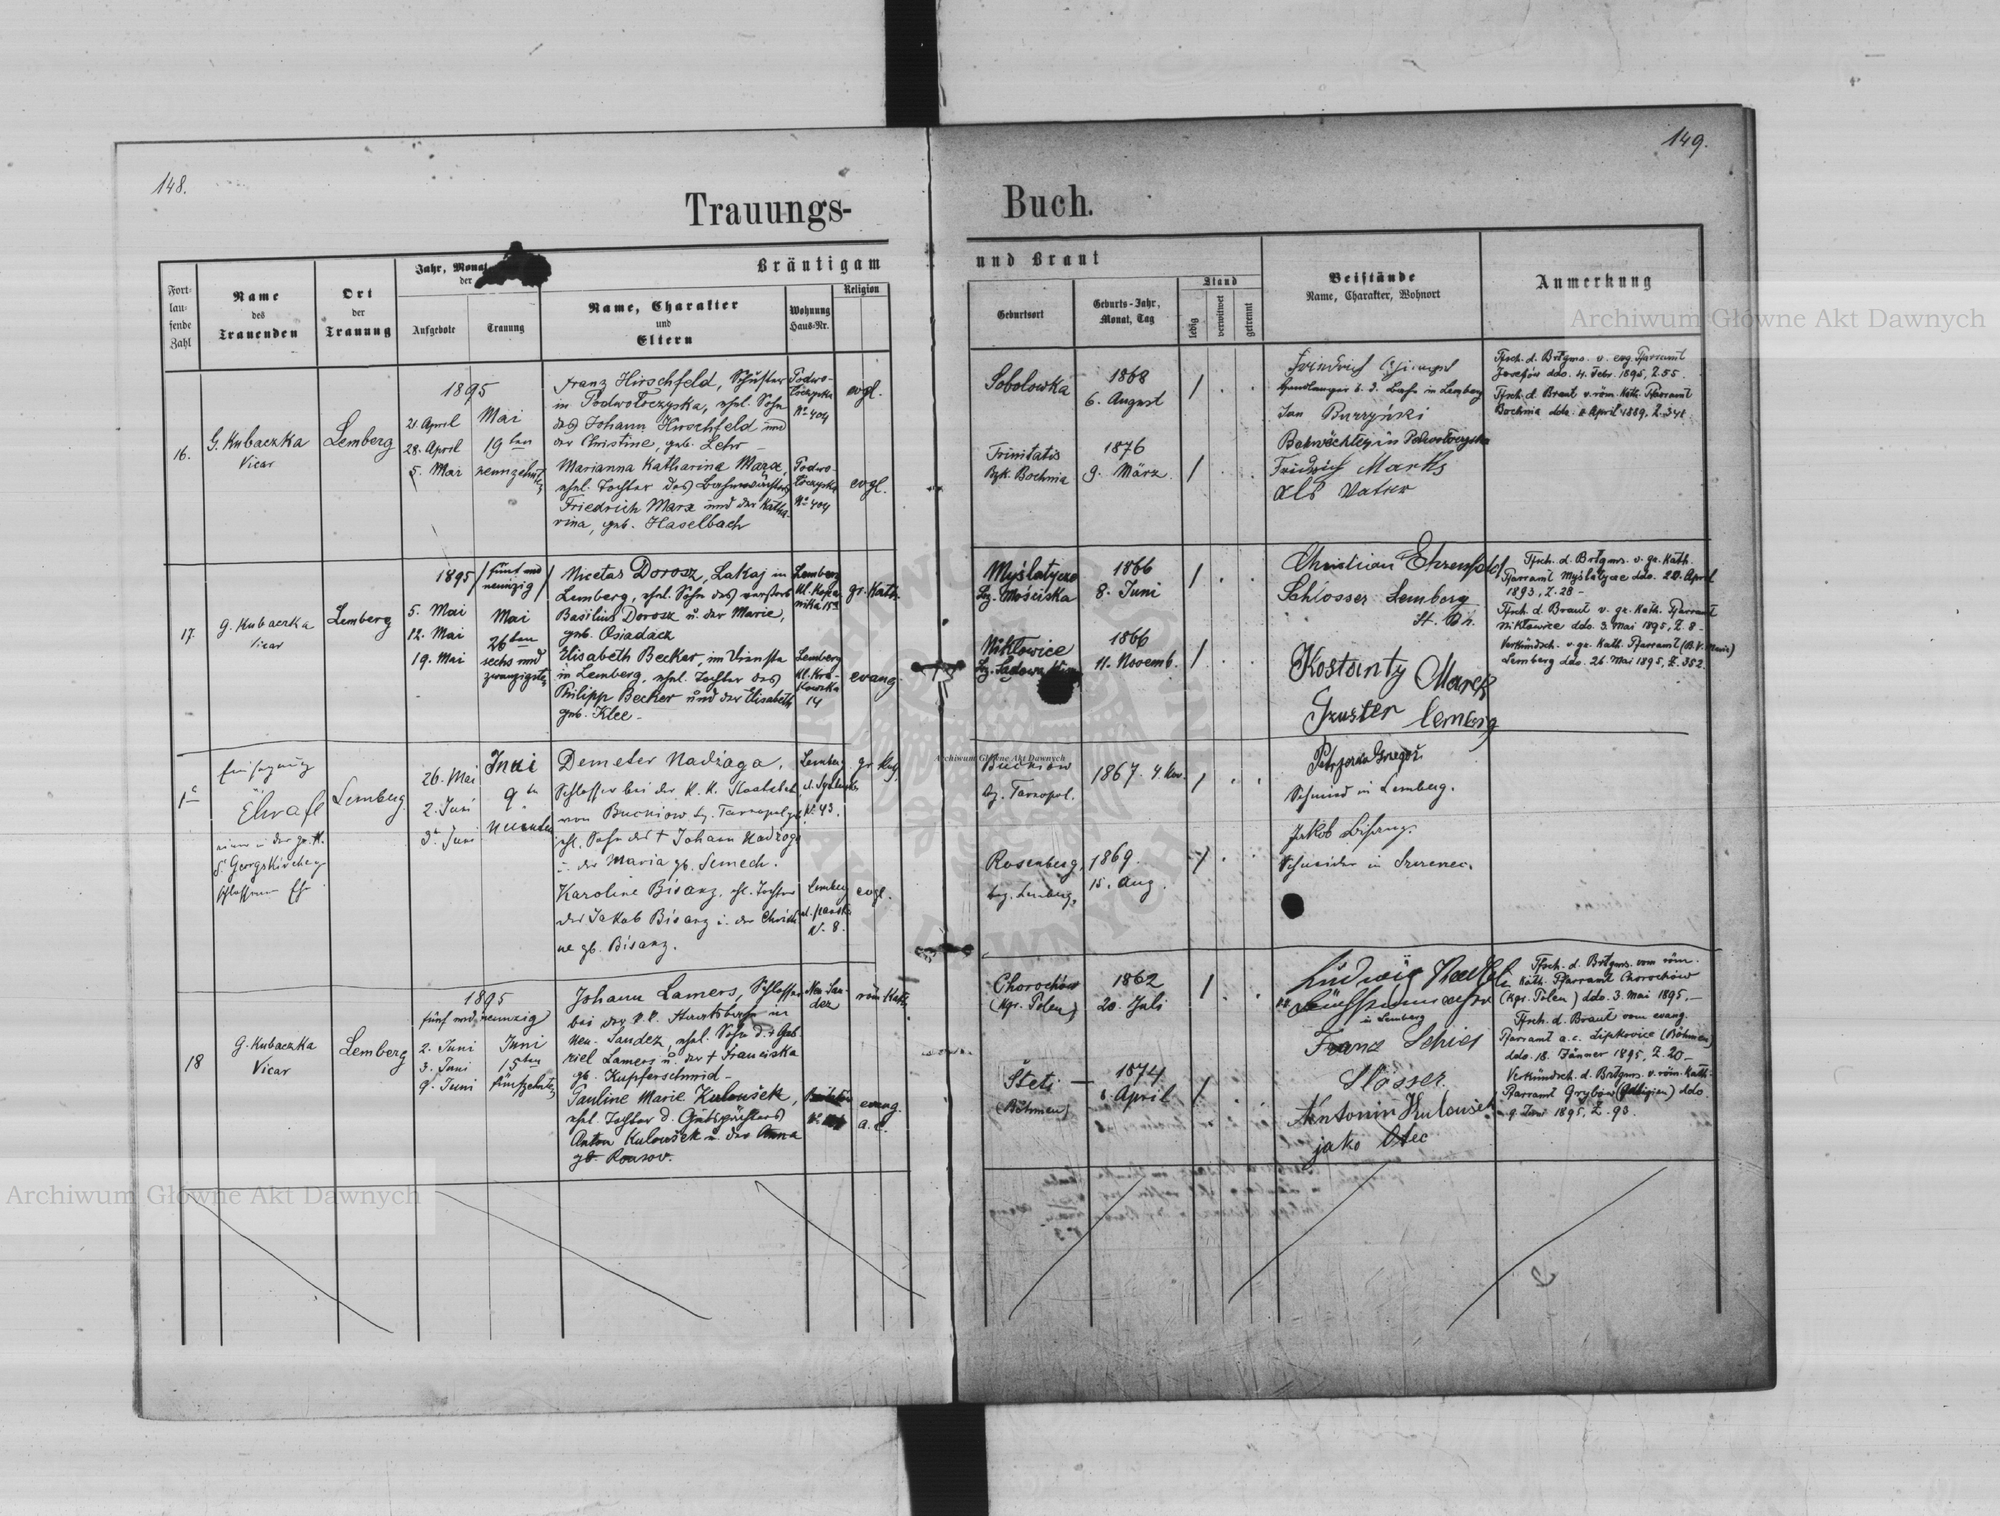 148.
149.
Trauungs-
Buch.
Fort-
lau-
fende
Zahl
Name
des
Trauenden
Ort
der
Trauung
Jahr, Monat
der
Aufgebote
Trauung
Bräutigam
Name, Charakter
und
Eltern
Wohnung
Haus-Nr.
Religion
und Braut
Geburtsort
Geburts-Jahr,
Monat, Tag
Stand
ledig
verwitwet
getrennt
Beistände
Name, Charakter, Wohnort
Anmerkung
16.
G. Kubaczka
Vicar
Lemberg
1895
21. April
28. April
5. Mai
Mai
19ten
neunzehnte
Franz Hirschfeld, Schuster
in Podwołoczyska, ehel. Sohn
des Johann Hirschfeld und
der Christine, geb. Lehr
Podwo-
łoczyska
No 404
evgl.
Marianna Katharina Marx,
ehel. Tochter des Bahnwächters
Friedrich Marx und der Katha-
rina, geb. Haselbach
Podwo-
łoczyska
No 404
evgl.
Sobolowka
1868
6. August
Trinitatis
Bzk. Bochnia
1876
9. März
Jan Burzyński
Bahnwächter in Podwołoczyska
Friedrich Marks
als Vater
Tfsch. d. Brtgms. v. evg. Pfarramt
Josefów ddo. 4. Febr. 1895, Z. 55.
Tfsch. d. Braut v. röm. Kath. Pfarramt
Bochnia ddo. April 1889. Z. 341.
17.
G. Kubaczka
Vicar
Lemberg
1895 / fünf und
neunzig /
5. Mai
12. Mai
19. Mai
Mai
26ten
sechs und
zwanzigste
Nicetas Dorosz, Lakaj in
Lemberg, ehel. Sohn des verstorb.
Basilius Dorosz u. der Marie,
geb. Osiadacz
gr. Kath.
Elisabeth Becker, im Dienste
in Lemberg, ehel. Tochter des
Philipp Becker und der Elisabeth
geb. Klee
Lemberg
14
evang.
Myślatycze
Bz. Mościska
1866
8. Juni
Nikłowice
1866
11. Novemb.
Christian
Schlosser Lemberg
Kostanty Marek
Lemberg
Tfsch. d. Brtgms. v. gr. Kath.
Pfarramt Myślatycze ddo. 20. April
1893, Z. 28 -
Tfsch. d. Braut v. gr. Kath. Pfarramt
Nikłowice ddo. 3. Mai 1895, Z. 8 -
Verkündsch. v. gr. Kath. Pfarramt
Lemberg ddo. 26. Mai 1895, Z. 352.
Einsegnung
Lemberg
26. Mai
2. Juni
Juni
Juni
9.
Demeter Nadżoga,
Schlosser bei der k. k. Staatsbahn
von Bucniów Bz. Tarnopol
ehl. Sohn des † Johann Nadżoga
u. der Maria gb. Semech.
Lemberg
N. 43.
gr. Kath.
Karoline Bisanz, ehl. Tochter
des Jakob Bisanz u. der Christi-
ne gb. Bisanz.
Lemberg
N. 8.
evgl.
Bucniów
Bz. Tarnopol.
1867. 4
Rosenberg,
bzg. Lemberg.
1869.
15. Aug.
Schmied in Lemberg.
Jakob Bisanz.
Schneider in Szczerzec.
18
G. Kubaczka
Vicar
Lemberg
1895
fünf und neunzig
2. Juni
3. Juni
9. Juni
Juni
15ten
fünfzehnte
Johann Lamers, Schlosser
bei der k. k. Staatsbahn in
Neu-Sandez, ehel. Sohn d. † Gab-
riel Lamers u. der † Franciska
gb. Kupferschmid -
Neu-San-
dez
röm. Kath.
Pauline Marie Kuloušek,
ehel. Tochter d. Gutspächters
Anton Kuloušek u. der Anna
gb. Rousov.
evang.
a. C.
Chorochów
(Kgr. Polen)
1862
20. Juli
Šteti
(Böhmen)
1874
April
Ludwig
in Lemberg
Franz Schier
Slosser
Antonin Kuloušek
jako Otec
Tfsch. d. Brtgms. vom röm.
Kath. Pfarramt Chorochów
(Kgr. Polen) ddo. 3. Mai 1895.
Tfsch. d. Braut vom evang.
Pfarramt a. c. Lipkovice (Böhmen)
ddo. 18. Jänner 1895, Z. 20 -
Verkündsch. d. Brtgms. v. röm. Kath.
Pfarramt Grybów (Galizien) ddo.
9. Juni 1895, Z. 93.
Archiwum Główne Akt Dawnych
Archiwum Główne Akt Dawnych
Archiwum Główne Akt Dawnych